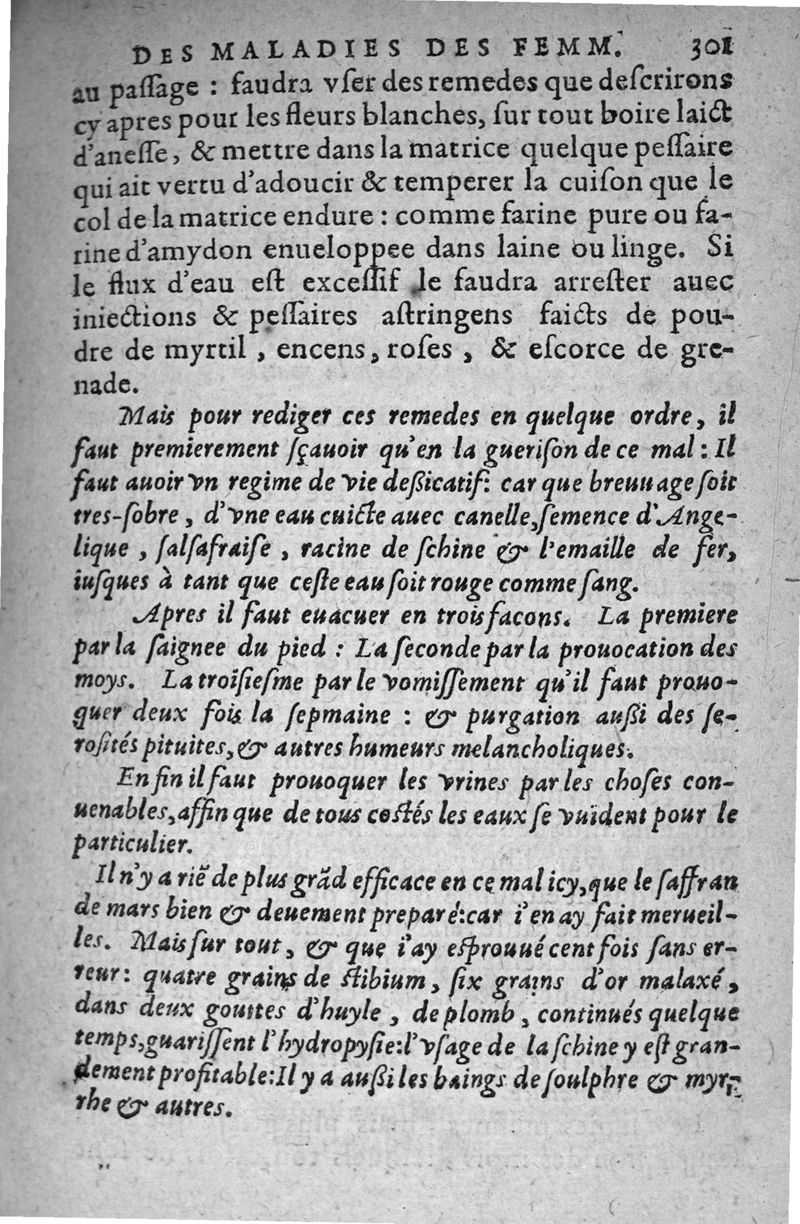 DES MALADIES DES FEMM. 301
au paſſage : faudra vſer des remedes que deſcrirons
cy apres pour les fleurs blanches, ſur tout boire laict
d'aneſſe, & mettre dans la matrice quelque peſſaire
qui ait vertu d'adoucir & temperer la cuiſon que le
col de la matrice endure : comme farine pure ou fa-
rine d'amydon enueloppee dans laine ou linge. Si
le flux d'eau eſt exceſſif le faudra arreſter auec
iniections & peſſaires aſtringens faicts de pou-
dre de myrtil , encens, roſes , & eſcorce de gre-
nade.
Mais pour rediger ces remedes en quelque ordre, il
faut premierement ſçauoir qu'en la gueriſon de ce mal : Il
faut auoir vn regime de vie deßicatif: car que breuuage ſoit
tres-ſobre , d'vne eau cuicte auec canelle,ſemence d'Ange-
lique , ſalſafraiſe , racine de ſchine & l'emaille de fer,
iuſques à tant que ceſte eau ſoit rouge comme ſang.
Apres il faut euacuer en trois facons. La premiere
par la ſaignee du pied : La ſeconde par la prouocation des
moys. La troiſieſme par le vomiſſement qu'il faut prouo-
quer deux fois la ſepmaine : & purgation außi des ſe-
roſités pituites,& autres humeurs melancholiques.
En fin il faut prouoquer les vrines par les choſes con-
uenables,affin que de tous coſtés les eaux ſe vuident pour le
particulier.
Il n'y a riẽ de plus grãd efficace en ce mal icy,que le ſaffran
de mars bien & deuement preparé:car i'en ay fait merueil-
les. Mais ſur tout , & que i'ay eſprouué cent fois ſans er-
reur: quatre grains de ſtibium , ſix grains d'or malaxé ,
dans deux gouttes d'huyle , de plomb , continués quelque
temps,guariſſent l'hydropyſie:l'vſage de la ſchine y eſt gran-
dement profitable:Il y a außi les baings de ſoulphre & myr-
rhe & autres.